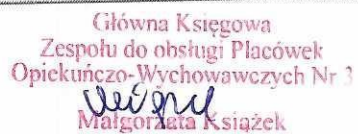 Główna Księgowa
Zespołu do obsługi Placówek
Opiekuńczo-Wychowawczych Nr 3
Małgorzata Książek